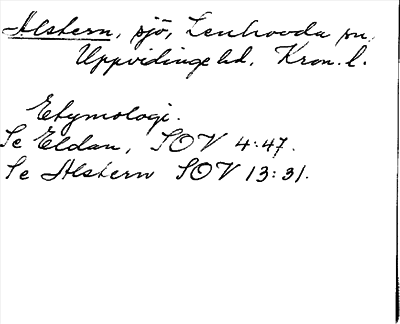 Alstern, sjö, Lenhovda sn.
Uppvidinge hd, Kron. l.
Etymologi.
Se Eldan, SOV 4:47.
Se Alstern SOV 13:31.